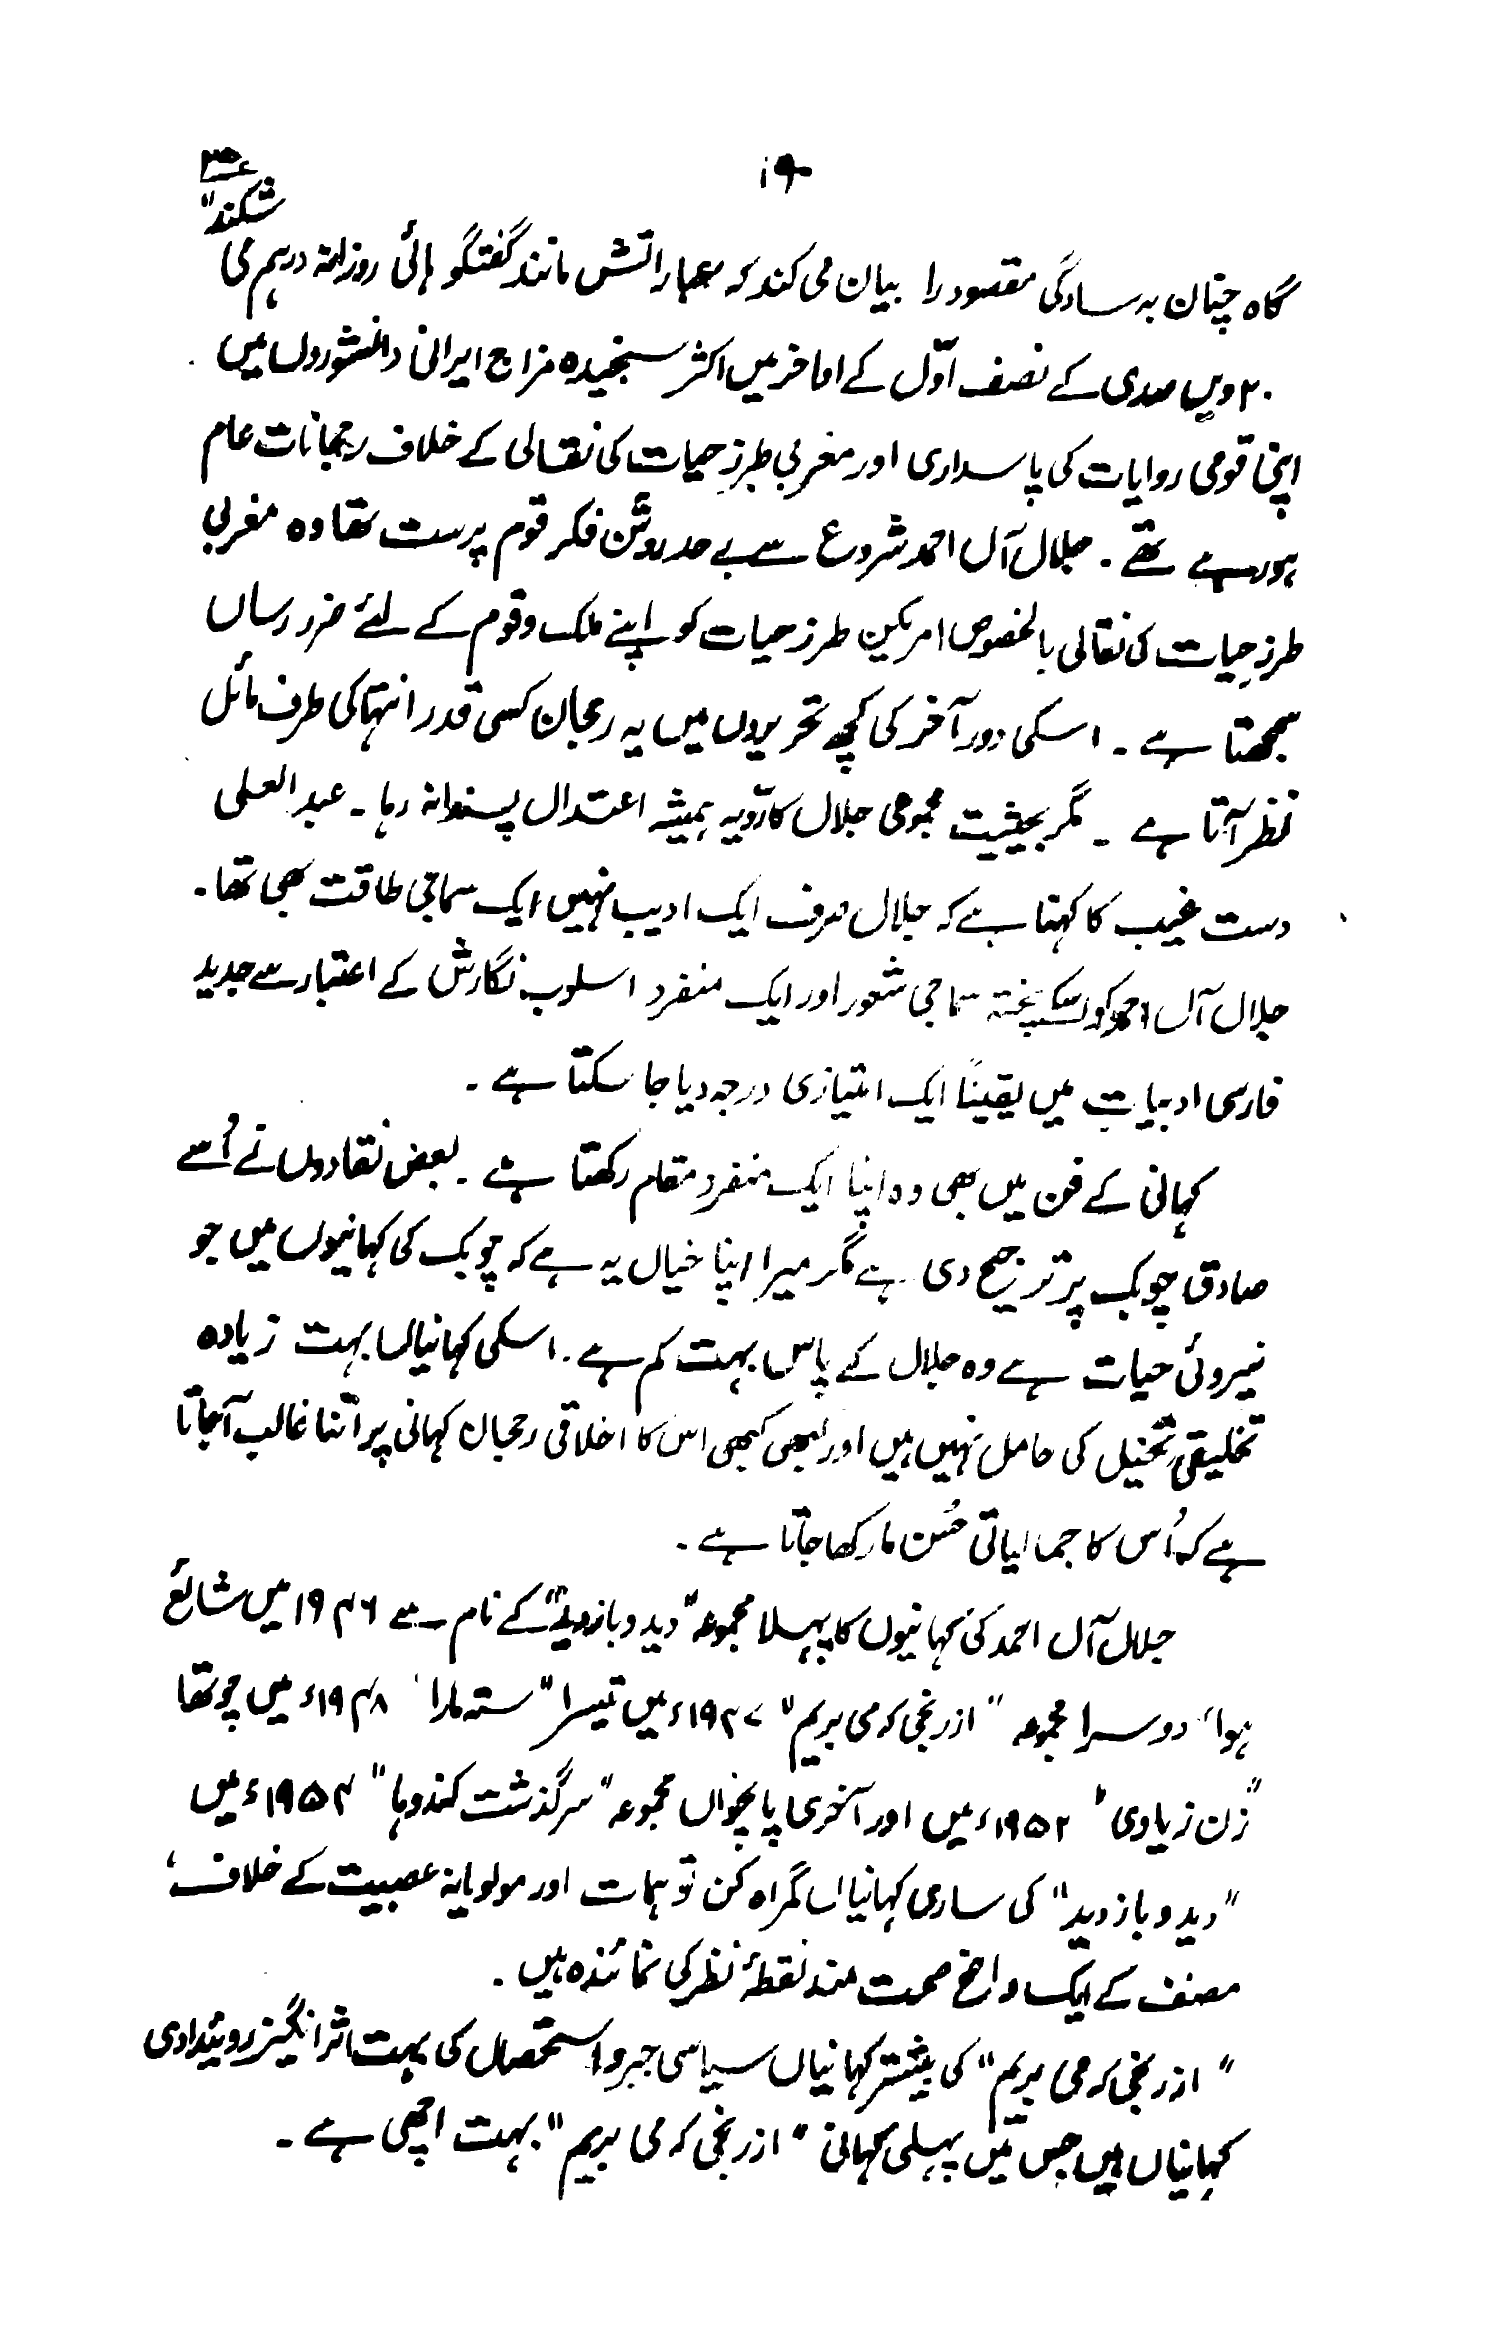 ۱۹
گاہ چنان بہ سادگی مقصود را بیان می کند کہ عباراتش مانند گفتگو ہائی روزانہ درہم می شکند"
۲۰ ویں صدی کے نصف اوّل کے اواخر میں اکثر سنجیدہ مزاج ایرانی دانشوروں میں
اپنی قومی روایات کی پاسداری اور مغربی طرزِ حیات کی نقالی کے خلاف رجحانات عام
ہو رہے تھے ۔ جلال آل احمد شروع سے بے حد روشن فکر قوم پرست تھا وہ مغربی
طرزِ حیات کی نقالی بالخصوص امریکین طرز حیات کو اپنے ملک و قوم کے لئے ضرر رساں
سمجھتا ہے ۔ اسکی دور آخر کی کچھ تحریروں میں یہ رجحان کسی قدر انتہا کی طرف مائل
نظر آتا ہے ۔ مگر بحیثیت مجموعی جلال کا رّویہ ہمیشہ اعتدال پسندانہ رہا ۔ عبد العلی
دست غیب کا کہنا ہے کہ جلال صرف ایک ادیب نہیں ایک سماجی طاقت بھی تھا ۔
جلال آل احمد کو اسکے پختہ سماجی شعور اور ایک منفرد اسلوب نگارش کے اعتبار سے جدید
فارسی ادبیات میں یقیناً ایک امتیازی درجہ دیا جا سکتا ہے ۔
کہانی کے فن میں بھی وہ اپنا ایک منفرد مقام رکھتا ہے ۔ بعض نقادوں نے اُسے
صادق چوبک پر ترجیح دی ہے مگر میرا اپنا خیال یہ ہے کہ چوبک کی کہانیوں میں جو
نیروئی حیات ہے وہ جلال کے پاس بہت کم ہے ۔ اسکی کہانیاں بہت زیادہ
تخلیقی تخیل کی حامل نہیں ہیں اور کبھی کبھی اس کا اخلاقی رجحان کہانی پر اتنا غالب آجاتا
ہے کہ اُس کا جمالیاتی حُسن مار کھا جاتا ہے ۔
جلال آل احمد کی کہانیوں کا پہلا مجموعہ "دید و بازدید" کے نام سے ۱۹۴۶ میں شائع
ہوا، دوسرا مجموعہ "از رنجی کہ می بریم" ۱۹۴۷ء میں تیسرا "سہ تارا" ۱۹۴۸ء میں چوتھا
"زن زیادی" ۱۹۵۲ء میں اور آخری پانچواں مجموعہ "سرگذشت کندوہا" ۱۹۵۴ء میں
"دید و بازدید" کی ساری کہانیاں گمراہ کن توہمات اور مولویانہ عصبیت کے خلاف،
مصنف کے ایک واضح صحت مند نقطۂ نظر کی نمائندہ ہیں ۔
"از رنجی کہ می بریم" کی بیشتر کہانیاں سیاسی جبر و استحصال کی بہت اثر انگیز روئیدادی
کہانیاں ہیں جس میں پہلی کہانی "از رنجی کہ می بریم" بہت اچھی ہے ۔